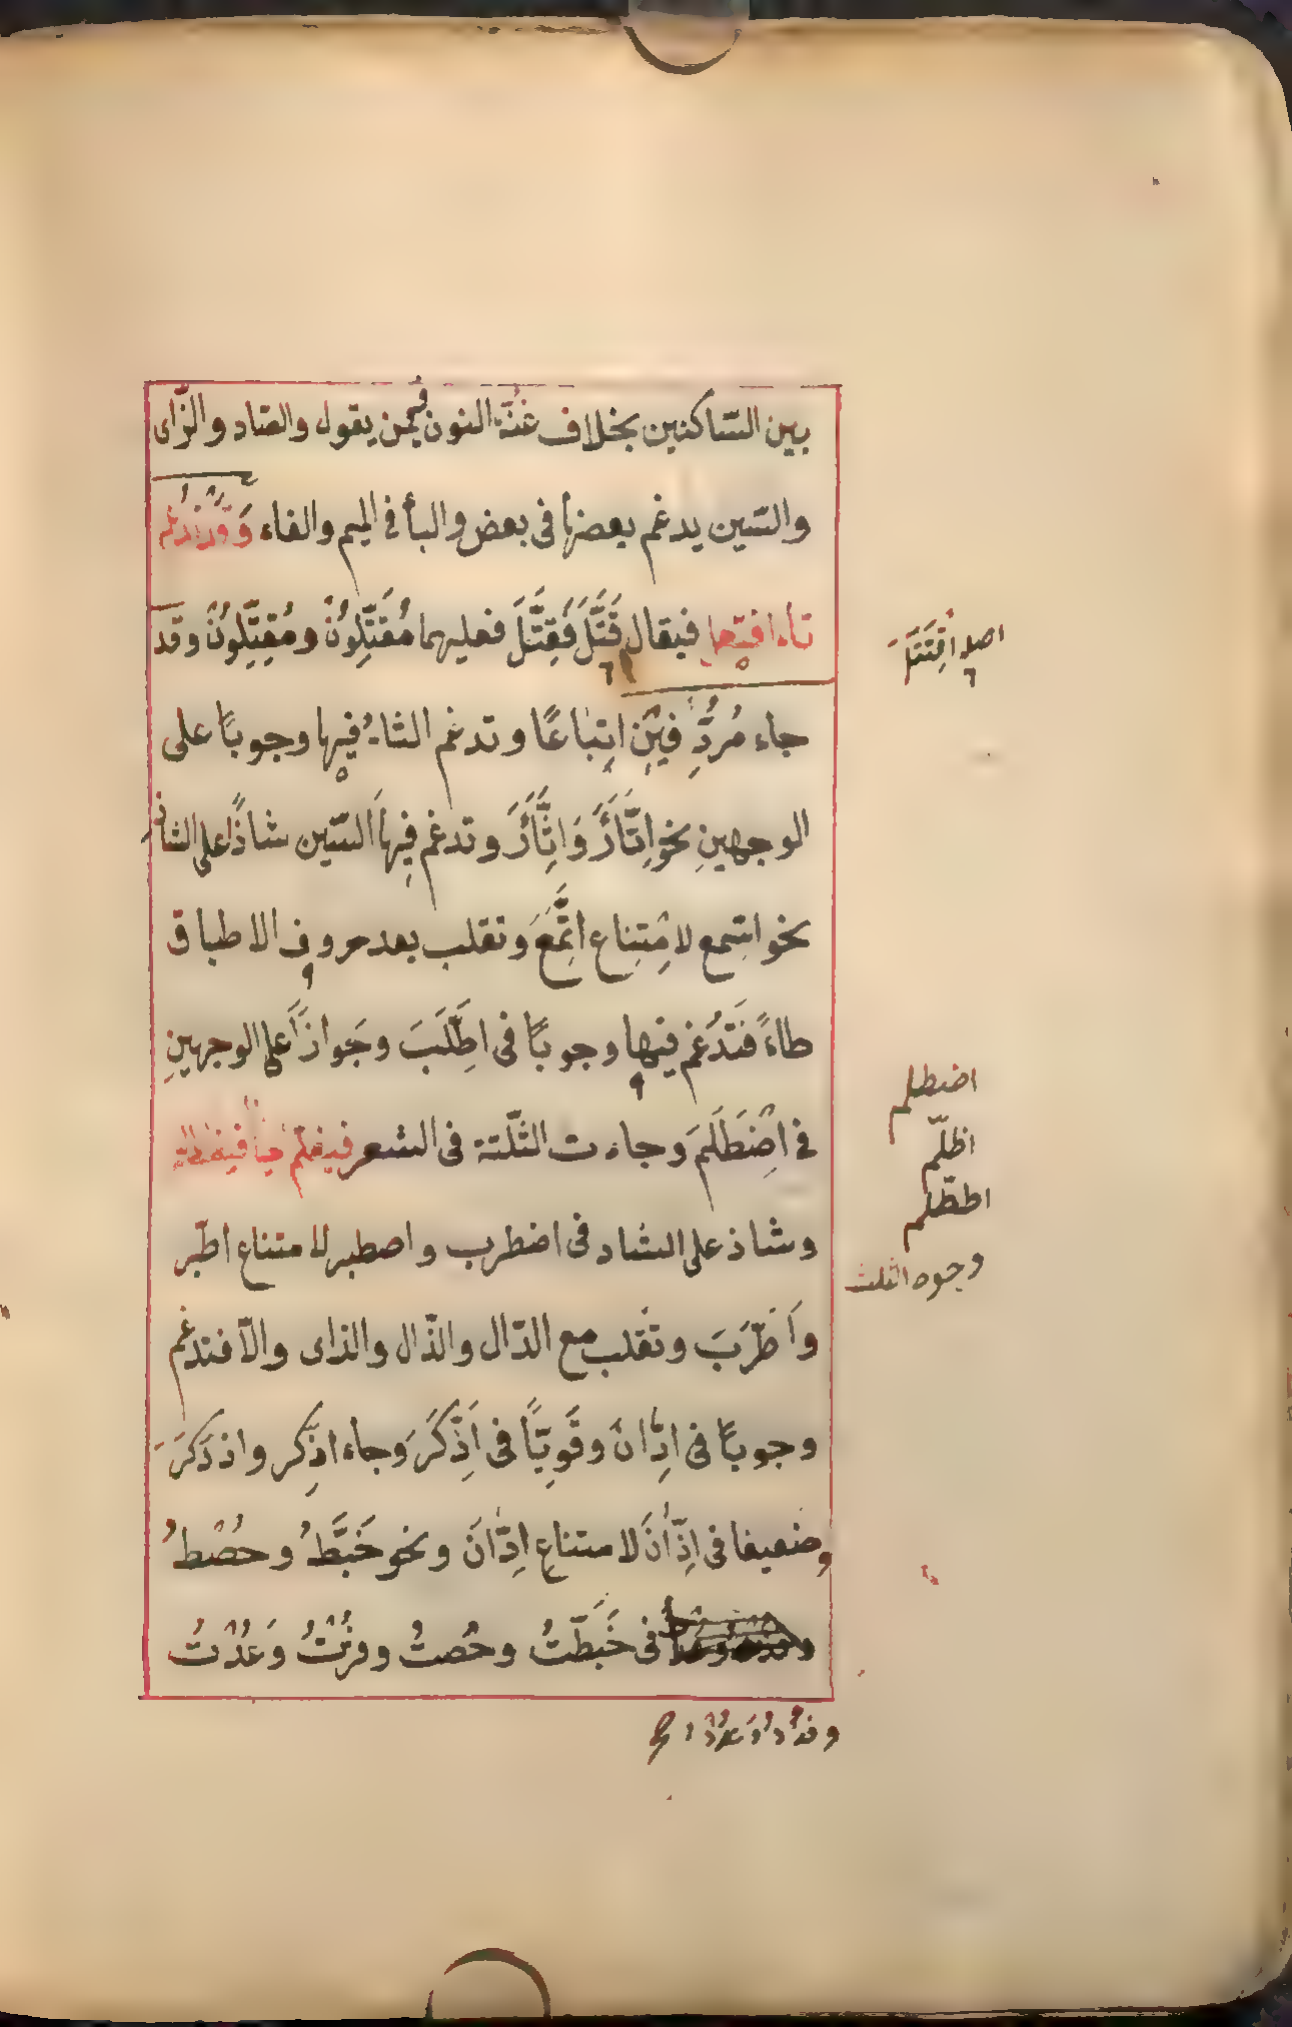 بين السّاكنين بخلاف غنّة النون فيمن يقول والصّاد والزّاى
والسّين يدغم بعضها فى بعض والبأ فى الميم والفاء وقد تدغم
تاء افتعل فيقال قَتَّلَ فَقِتَّلَ فعليهما مُقَتِّلُونَ ومُقِتِّلُونَ وقد
جاء مُردِّفينَ اتِبَاعًا وتدغم الثاء فيها وجوبًا على
الوجهينِ نحو اِتَّأَرَ وَاثَّأَرَ وتدغم فِيها السّين شاذًا على الشاذ
نحو اسّمع لامْتِناع اتَّمَعَ وتقلب بعد حروف الاطباق
طاءً فَتدْغم فيها وجوبًا فى اطَّلَبَ وجَوازًا على الوجهينِ
فى اِضْطَلَمَ وجاءت الثّلثة فى الشعر
وشاذ على الشاد فى اضطرب واصطبر لامتناع اطّبر
واَطّرَبَ وتقلب مع الدّال والذّال والزاى والاّ فتدغم
وجوبًا فى ادِّانَ وقَوِيّاً فى اَذّكَرَ وجاء اذّكر واذدَكَرَ
وضعيفا فى اِزّانَ لامتناعِ اِدّانَ ونحو خَبَطُّ وحُصْطُ
فى خَبَطّتُ وحُصتُ وفزْتُ وَعُدْتُ
وفزْدُ وَعُدُّ
اصله اقْتَتَلَ
اضطلم
اظلّم
اططّلم
وجوه الثلث